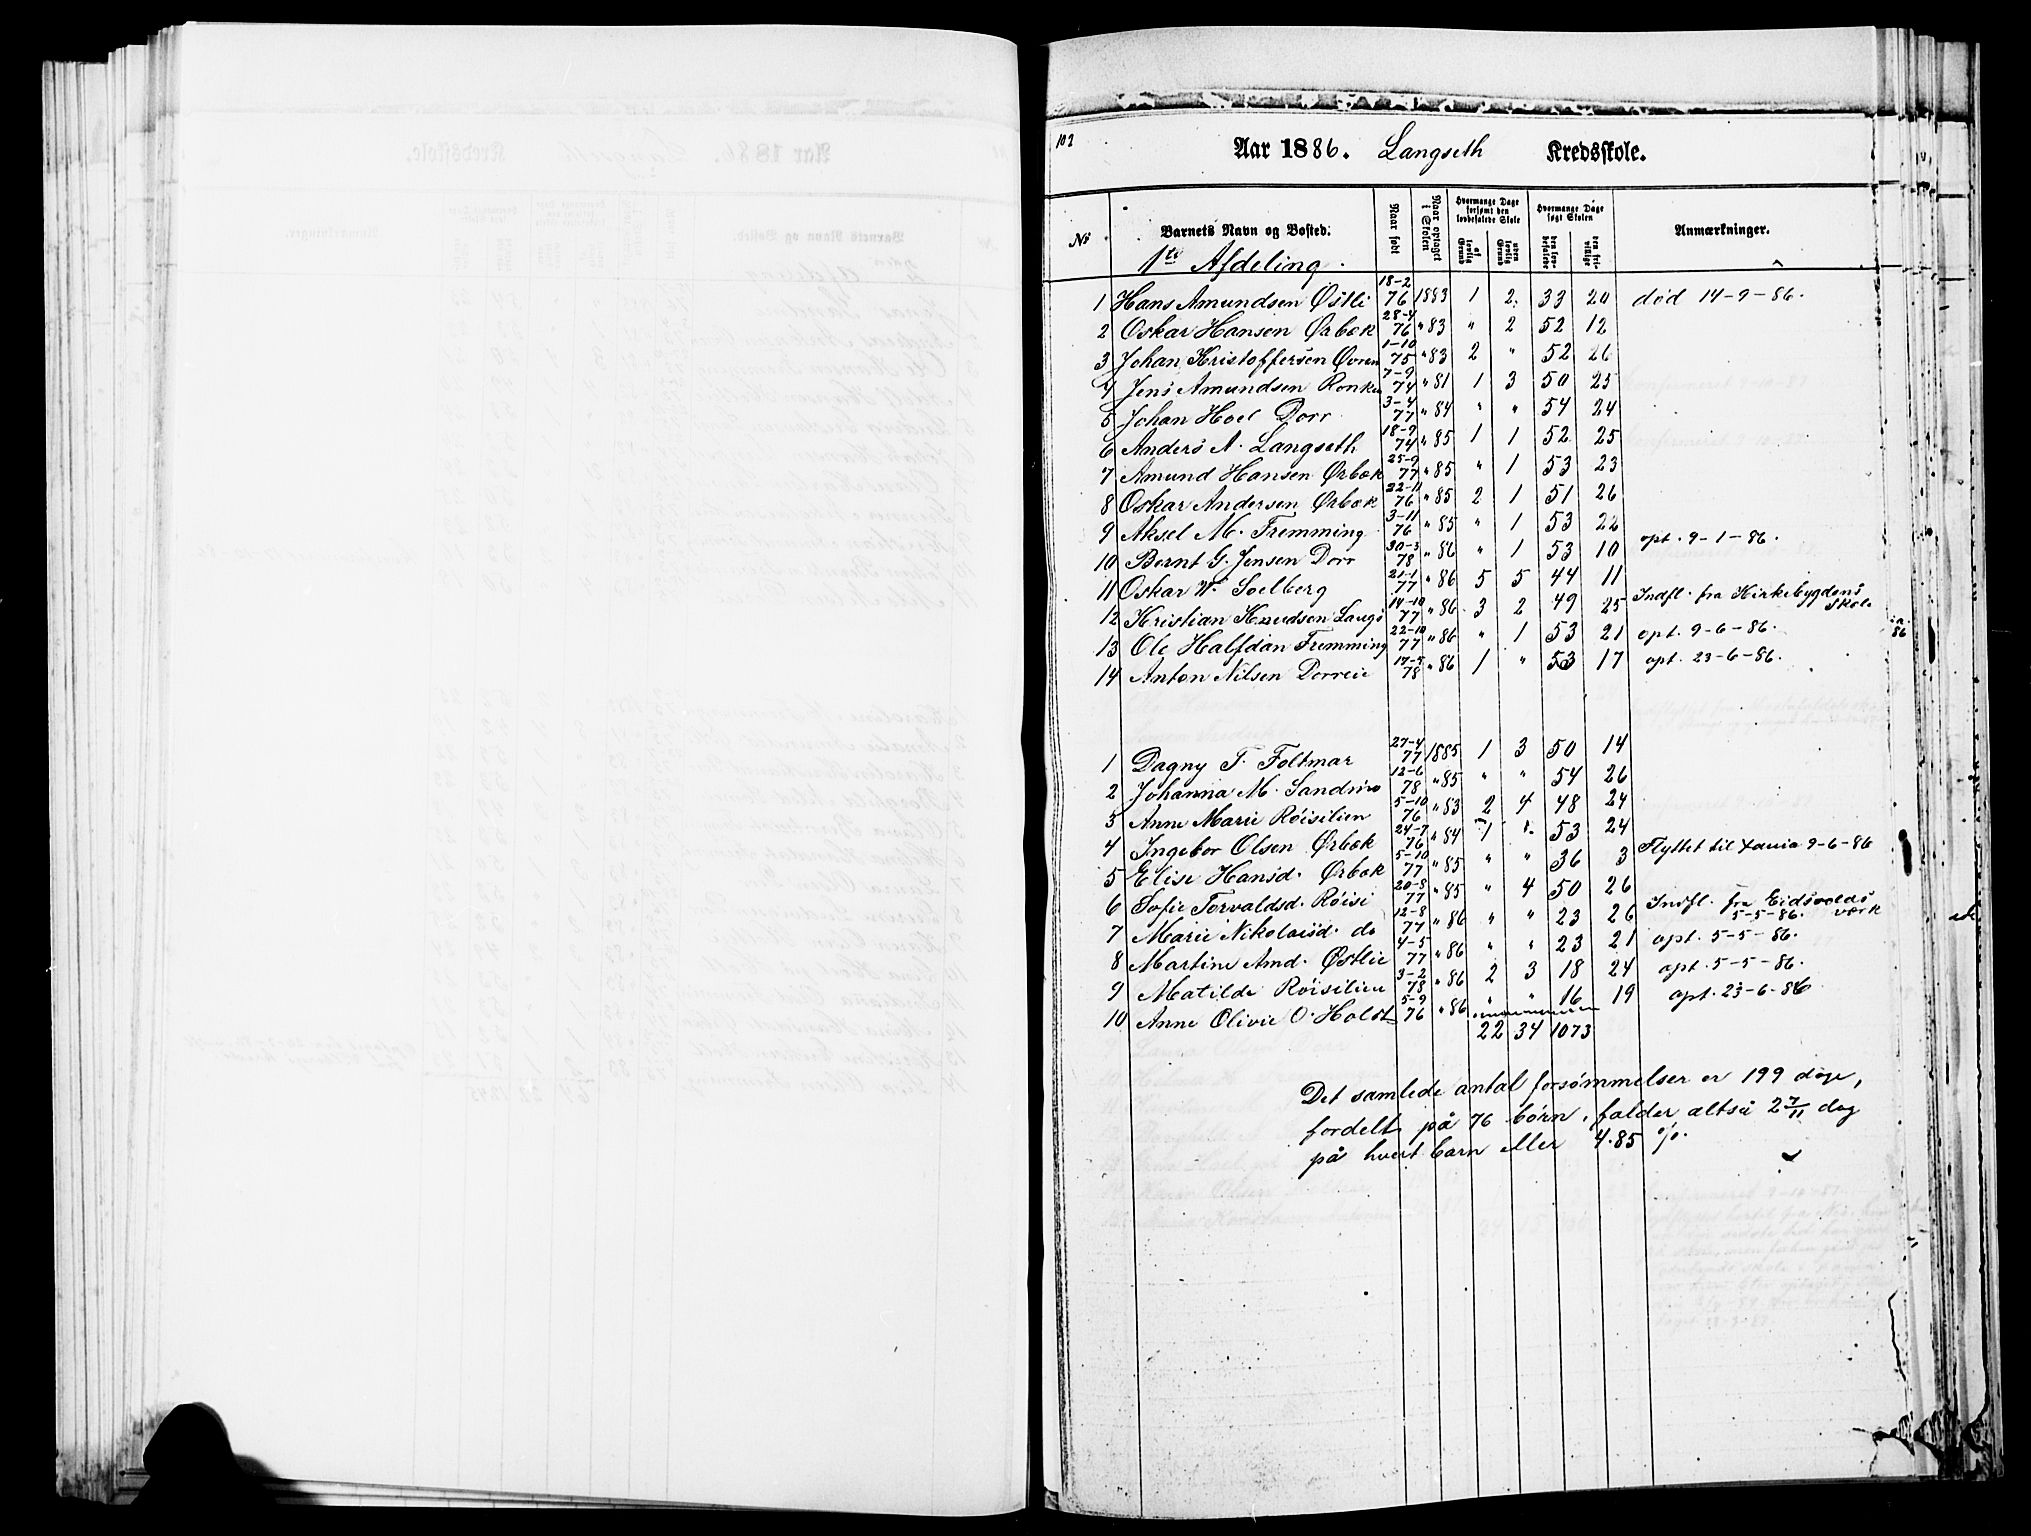 102
Aar 1886. Langseth Kredsskole.
No Barnets Navn og Bosted. Naar født Naar optaget i Skolen Hvormange Dage forsømt den lovbefalede Skole af lovlig Grund uden lovlig Grund Hvormange Dage søgt Skolen den lovbefalede den frivillige Anmærkninger.
1ste Afdeling.
1 Hans Amundsen Østli 18-2 76 1883 1 2 33 20 død 14-9-86.
2 Oskar Hansen Ørbæk 28-4 76 " 83 " 2 52 12
3 Johan Kristoffersen Øvren 1-10 75 " 83 2 " 52 26
4 Jens Amundsen Ronken 7-9 74 " 81 1 3 50 25
5 Johan Hoel Dorr 3-4 77 " 84 " " 54 24
6 Anders A. Langseth 18-9 74 " 85 1 1 52 25
7 Amund Hansen Ørbæk 25-9 77 " 85 " 1 53 23
8 Oskar Andersen Ørbæk 22-11 76 " 85 2 1 51 26
9 Aksel M. Fremming 3-11 76 " 85 " 1 53 22
10 Bernt G. Jensen Dorr 30-3 78 " 86 " 1 53 10 opt. 9-1-86.
11 Oskar W. Soelberg 21-1 77 " 86 5 5 44 11
12 Kristian Knudsen Langs 14-10 77 " 86 3 2 49 25 Indfl. fra Kirkebygdens Skole
13 Ole Halfdan Fremming 22-10 77 " 86 " 1 53 21 opt. 9-6-86.
14 Anton Nilsen Dorreie 14-5 78 " 86 1 " 53 17 opt. 23-6-86.
1 Dagny T. Foltmar 27-4 77 1885 1 3 50 14
2 Johanna M. Sandmo 12-6 78 " 85 " " 54 26
3 Anne Marie Røisilien 5-10 76 " 83 2 4 48 24
4 Ingebor Olsen Ørbæk 24-7 76 " 84 1 " 53 24
5 Elise Hansd. Ørbæk 5-10 77 " 85 " " 36 3 Flyttet til Xania 9-6-86
6 Sofie Torvaldsd. Røisi 20-8 77 " 85 " 4 50 26
7 Marie Nikolaisd. do 12-8 77 " 86 " " 23 26 Indfl. fra Eidsvolds værk 5-5-86.
8 Martine Amd. Østlie 4-5 77 " 86 " " 23 21 opt. 5-5-86.
9 Matilde Røisilien 3-2 78 " 86 2 3 18 24 opt. 5-5-86.
10 Anne Olivie O. Holst 5-9 76 " 86 " " 16 19 opt. 23-6-86
22 34 1073
Det samlede antal forsømmelser er 199 dage,
fordelt på 76 børn, falder altså 2 7/11 dag
på hvert barn eller 4.85 %.